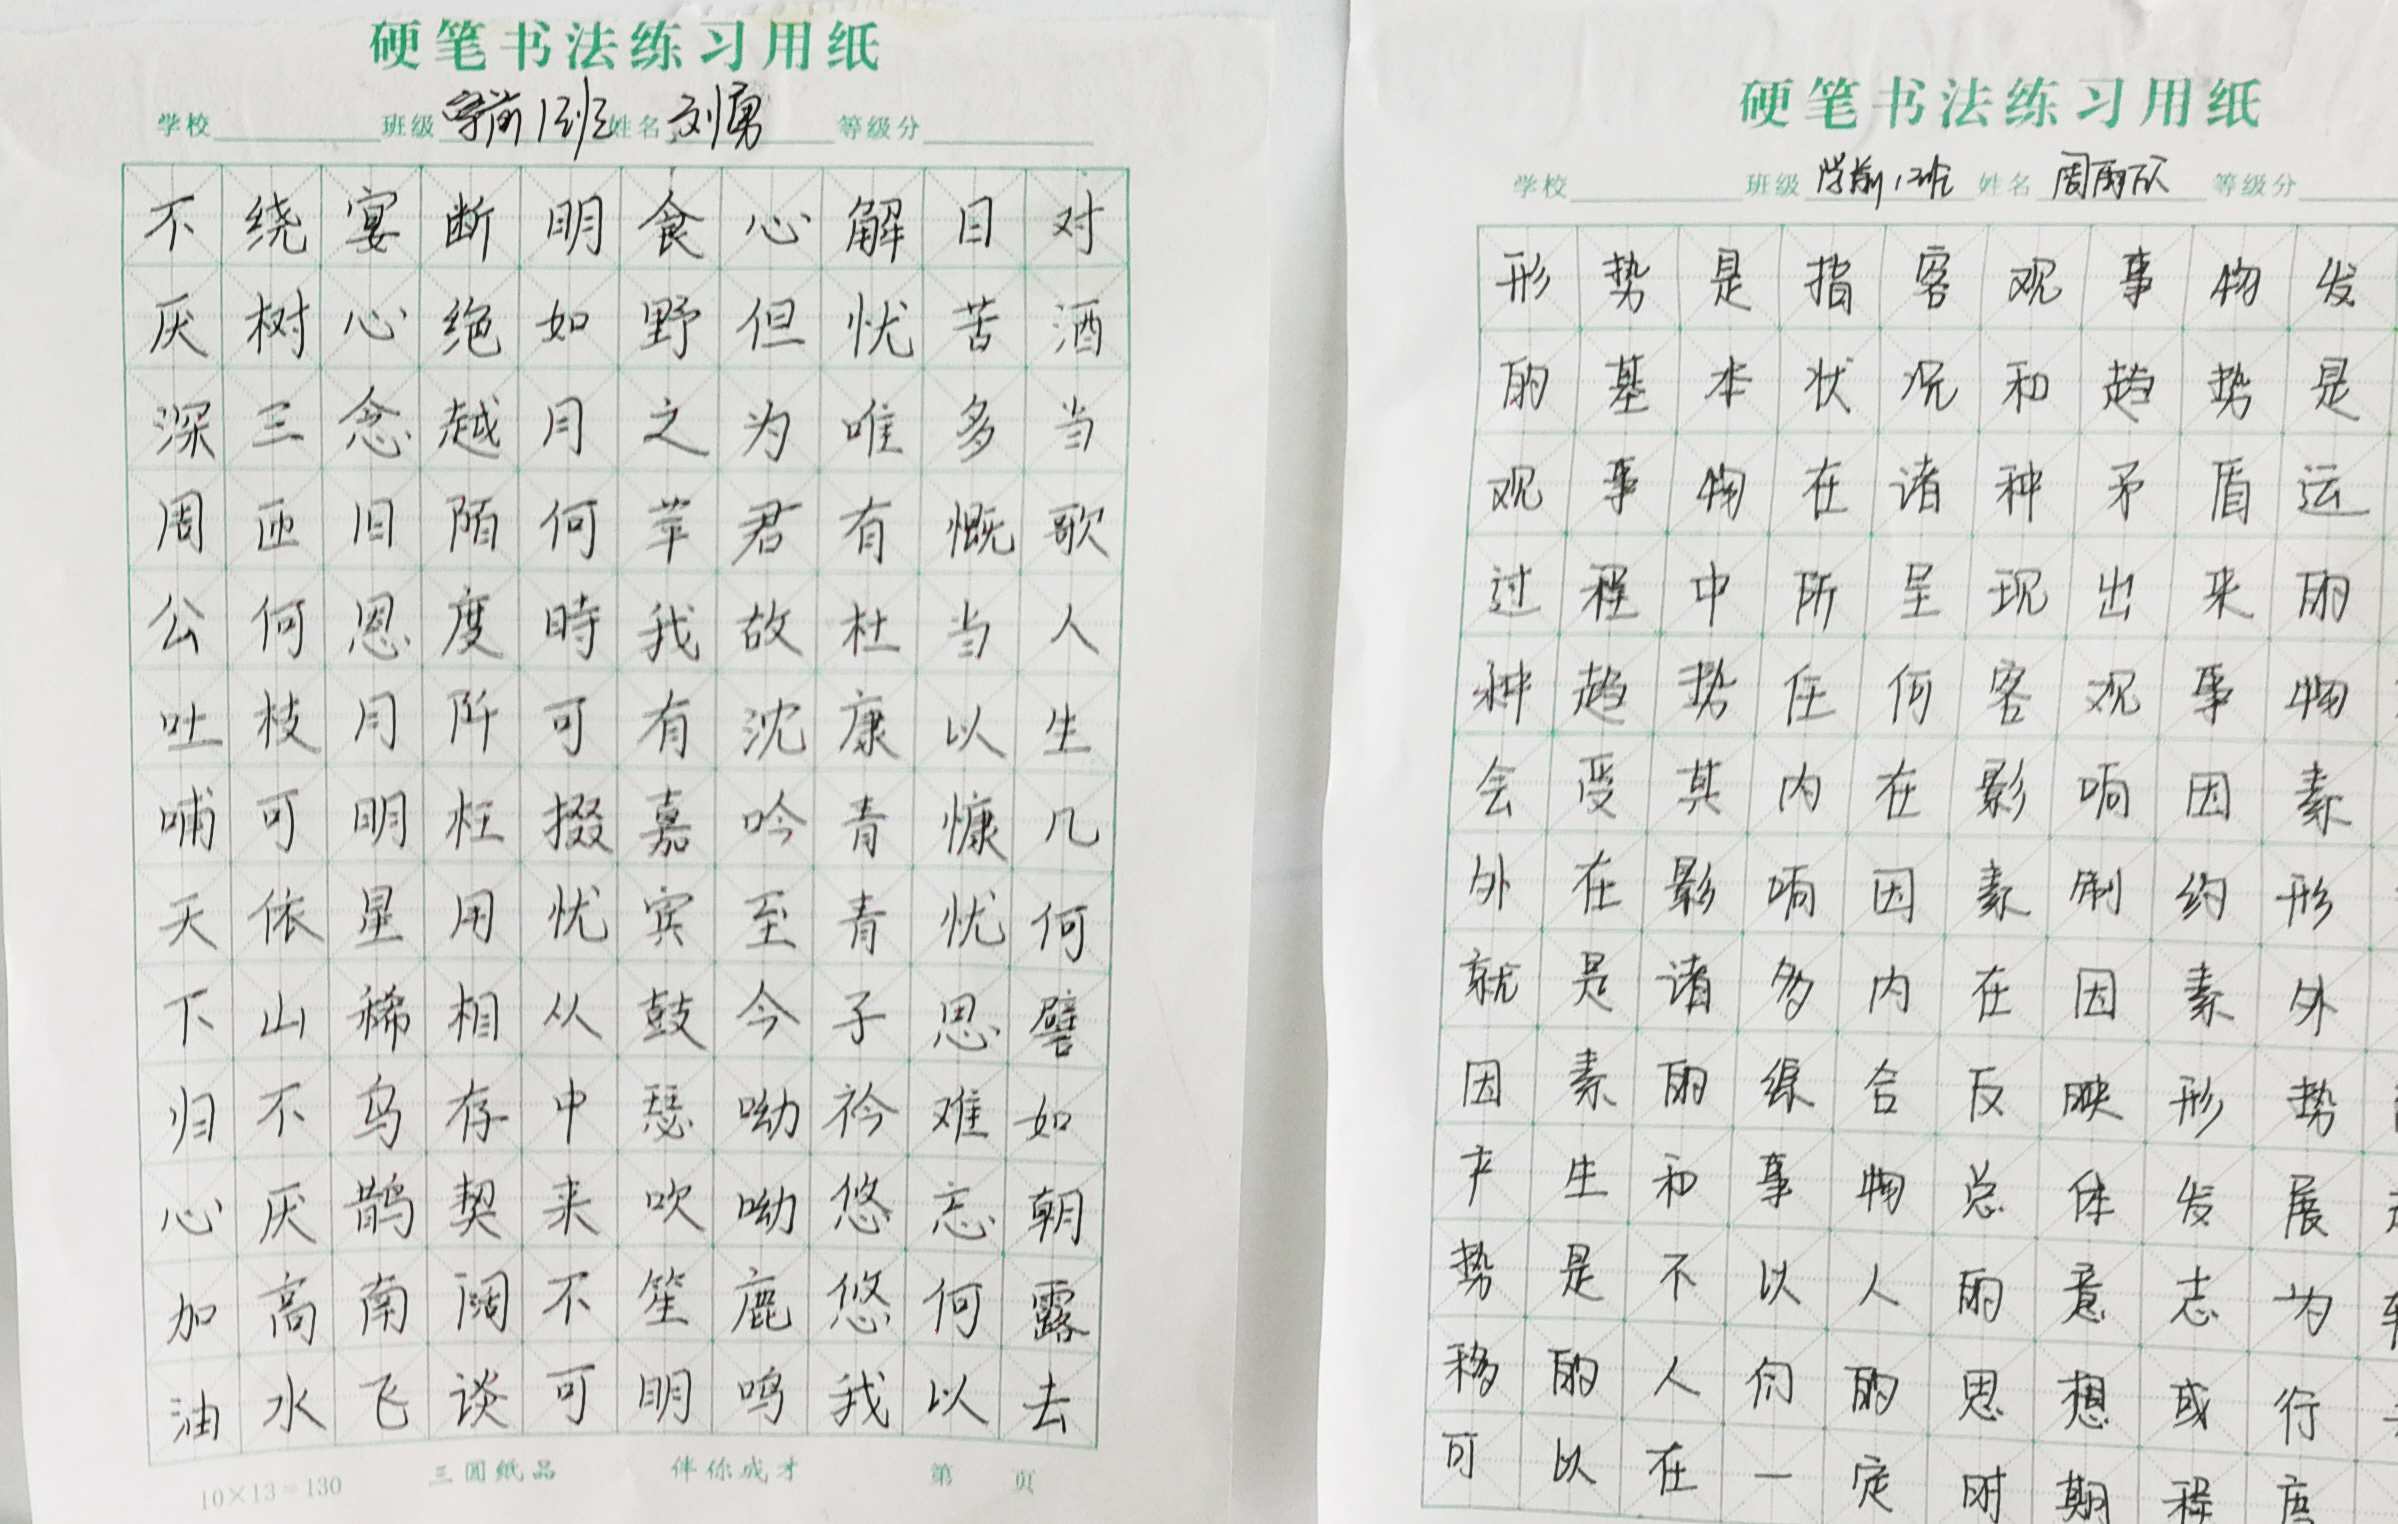 硬笔书法练习用纸
学校 班级 学前1班 姓名 刘勇 等级分
对酒当歌人生几何譬如朝露去
日苦多慨当以慷忧思难忘何以
解忧唯有杜康青青子衿悠悠我
心但为君故沈吟至今呦呦鹿鸣
食野之苹我有嘉宾鼓瑟吹笙明
明如月何時可掇忧从中来不可
断绝越陌度阡枉用相存契阔谈
宴心念旧恩月明星稀乌鹊南飞
绕树三匝何枝可依山不厌高水
不厌深周公吐哺天下归心加油
10×13=130 三圆纸品 伴你成才 第 页
硬笔书法练习用纸
学校 班级 学前1班 姓名 周雨欣 等级分
形势是指客观事物发
的基本状况和趋势是
观事物在诸种矛盾运
过程中所呈现出来的
种趋势任何客观事物
会受其内在影响因素
外在影响因素制约形
就是诸多内在因素外
因素的综合反映形势
产生和事物总体发展
势是不以人的意志为
移的人们的思想或行
可以在一定时期程度